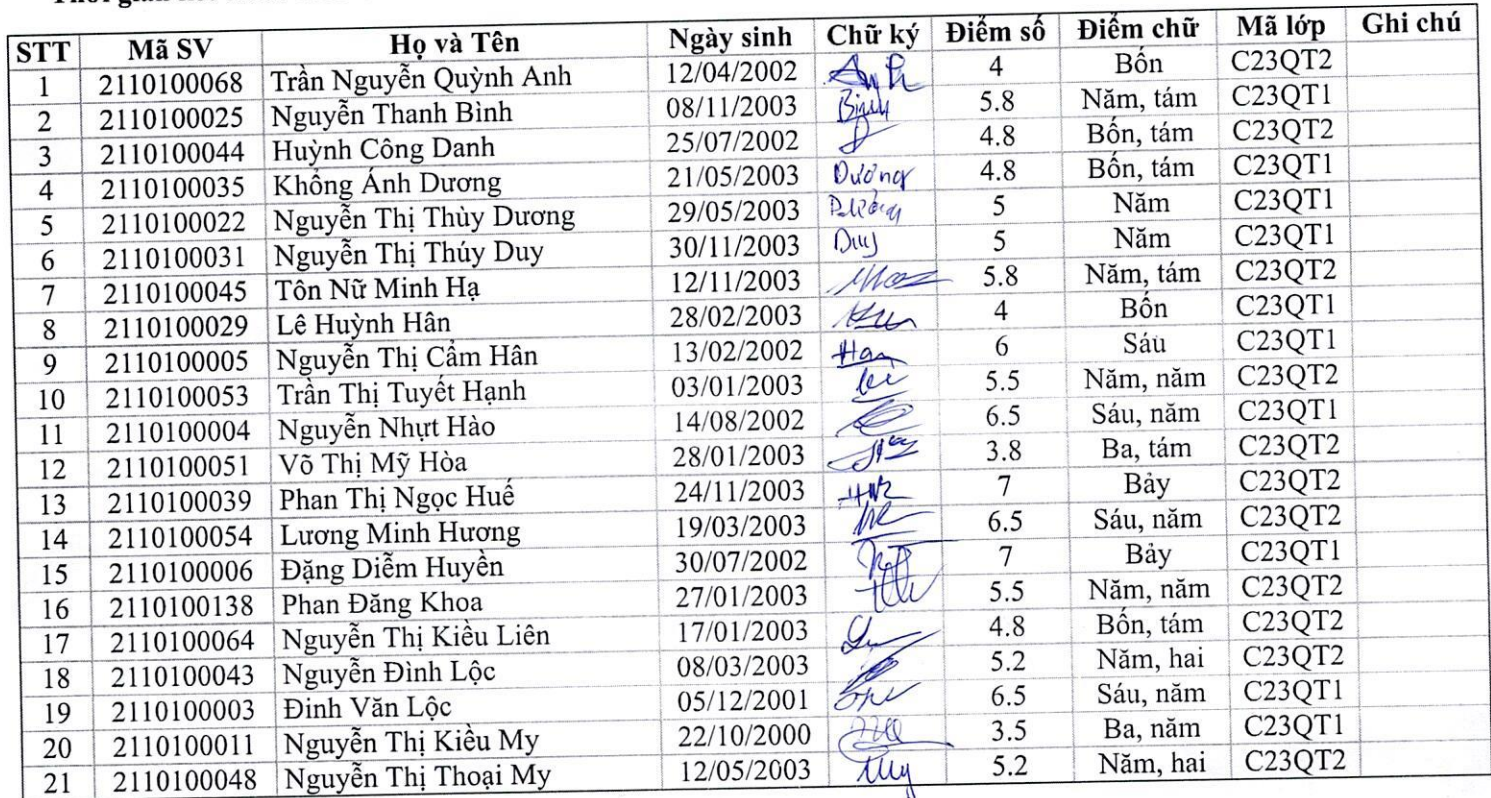 STT Mã SV Họ và Tên Ngày sinh Chữ ký Điểm số Điểm chữ Mã lớp Ghi chú
1 2110100068 Trần Nguyễn Quỳnh Anh 12/04/2002 4 Bốn C23QT2
2 2110100025 Nguyễn Thanh Bình 08/11/2003 5.8 Năm, tám C23QT1
3 2110100044 Huỳnh Công Danh 25/07/2002 4.8 Bốn, tám C23QT2
4 2110100035 Khổng Ánh Dương 21/05/2003 Dương 4.8 Bốn, tám C23QT1
5 2110100022 Nguyễn Thị Thùy Dương 29/05/2003 5 Năm C23QT1
6 2110100031 Nguyễn Thị Thúy Duy 30/11/2003 Duy 5 Năm C23QT1
7 2110100045 Tôn Nữ Minh Hạ 12/11/2003 5.8 Năm, tám C23QT2
8 2110100029 Lê Huỳnh Hân 28/02/2003 4 Bốn C23QT1
9 2110100005 Nguyễn Thị Cẩm Hân 13/02/2002 6 Sáu C23QT1
10 2110100053 Trần Thị Tuyết Hạnh 03/01/2003 5.5 Năm, năm C23QT2
11 2110100004 Nguyễn Nhựt Hào 14/08/2002 6.5 Sáu, năm C23QT1
12 2110100051 Võ Thị Mỹ Hòa 28/01/2003 3.8 Ba, tám C23QT2
13 2110100039 Phan Thị Ngọc Huế 24/11/2003 7 Bảy C23QT2
14 2110100054 Lương Minh Hương 19/03/2003 6.5 Sáu, năm C23QT2
15 2110100006 Đặng Diễm Huyền 30/07/2002 7 Bảy C23QT1
16 2110100138 Phan Đăng Khoa 27/01/2003 5.5 Năm, năm C23QT2
17 2110100064 Nguyễn Thị Kiều Liên 17/01/2003 4.8 Bốn, tám C23QT2
18 2110100043 Nguyễn Đình Lộc 08/03/2003 5.2 Năm, hai C23QT2
19 2110100003 Đinh Văn Lộc 05/12/2001 6.5 Sáu, năm C23QT1
20 2110100011 Nguyễn Thị Kiều My 22/10/2000 3.5 Ba, năm C23QT1
21 2110100048 Nguyễn Thị Thoại My 12/05/2003 My 5.2 Năm, hai C23QT2